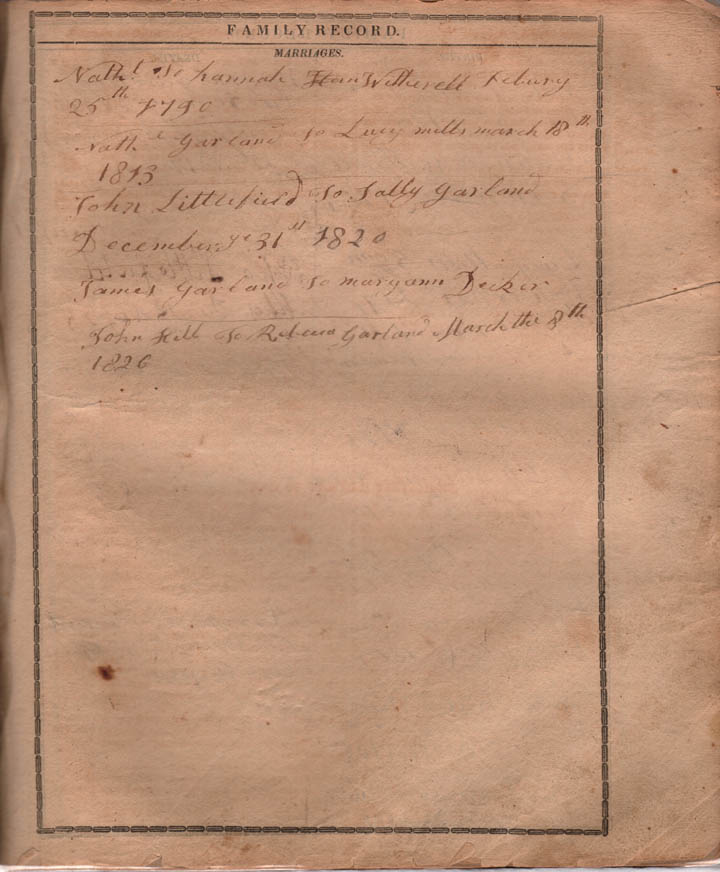 FAMILY RECORD.
MARRIAGES.
Nathl to hannah Witherell Febury
25th 1790
Nathl Garland to Lucy mills march 18th
1813
John Littlefield to Sally Garland
December ye 31st 1820
James Garland to maryann Decker
John Hill to Rebecca Garland March the 8th
1826